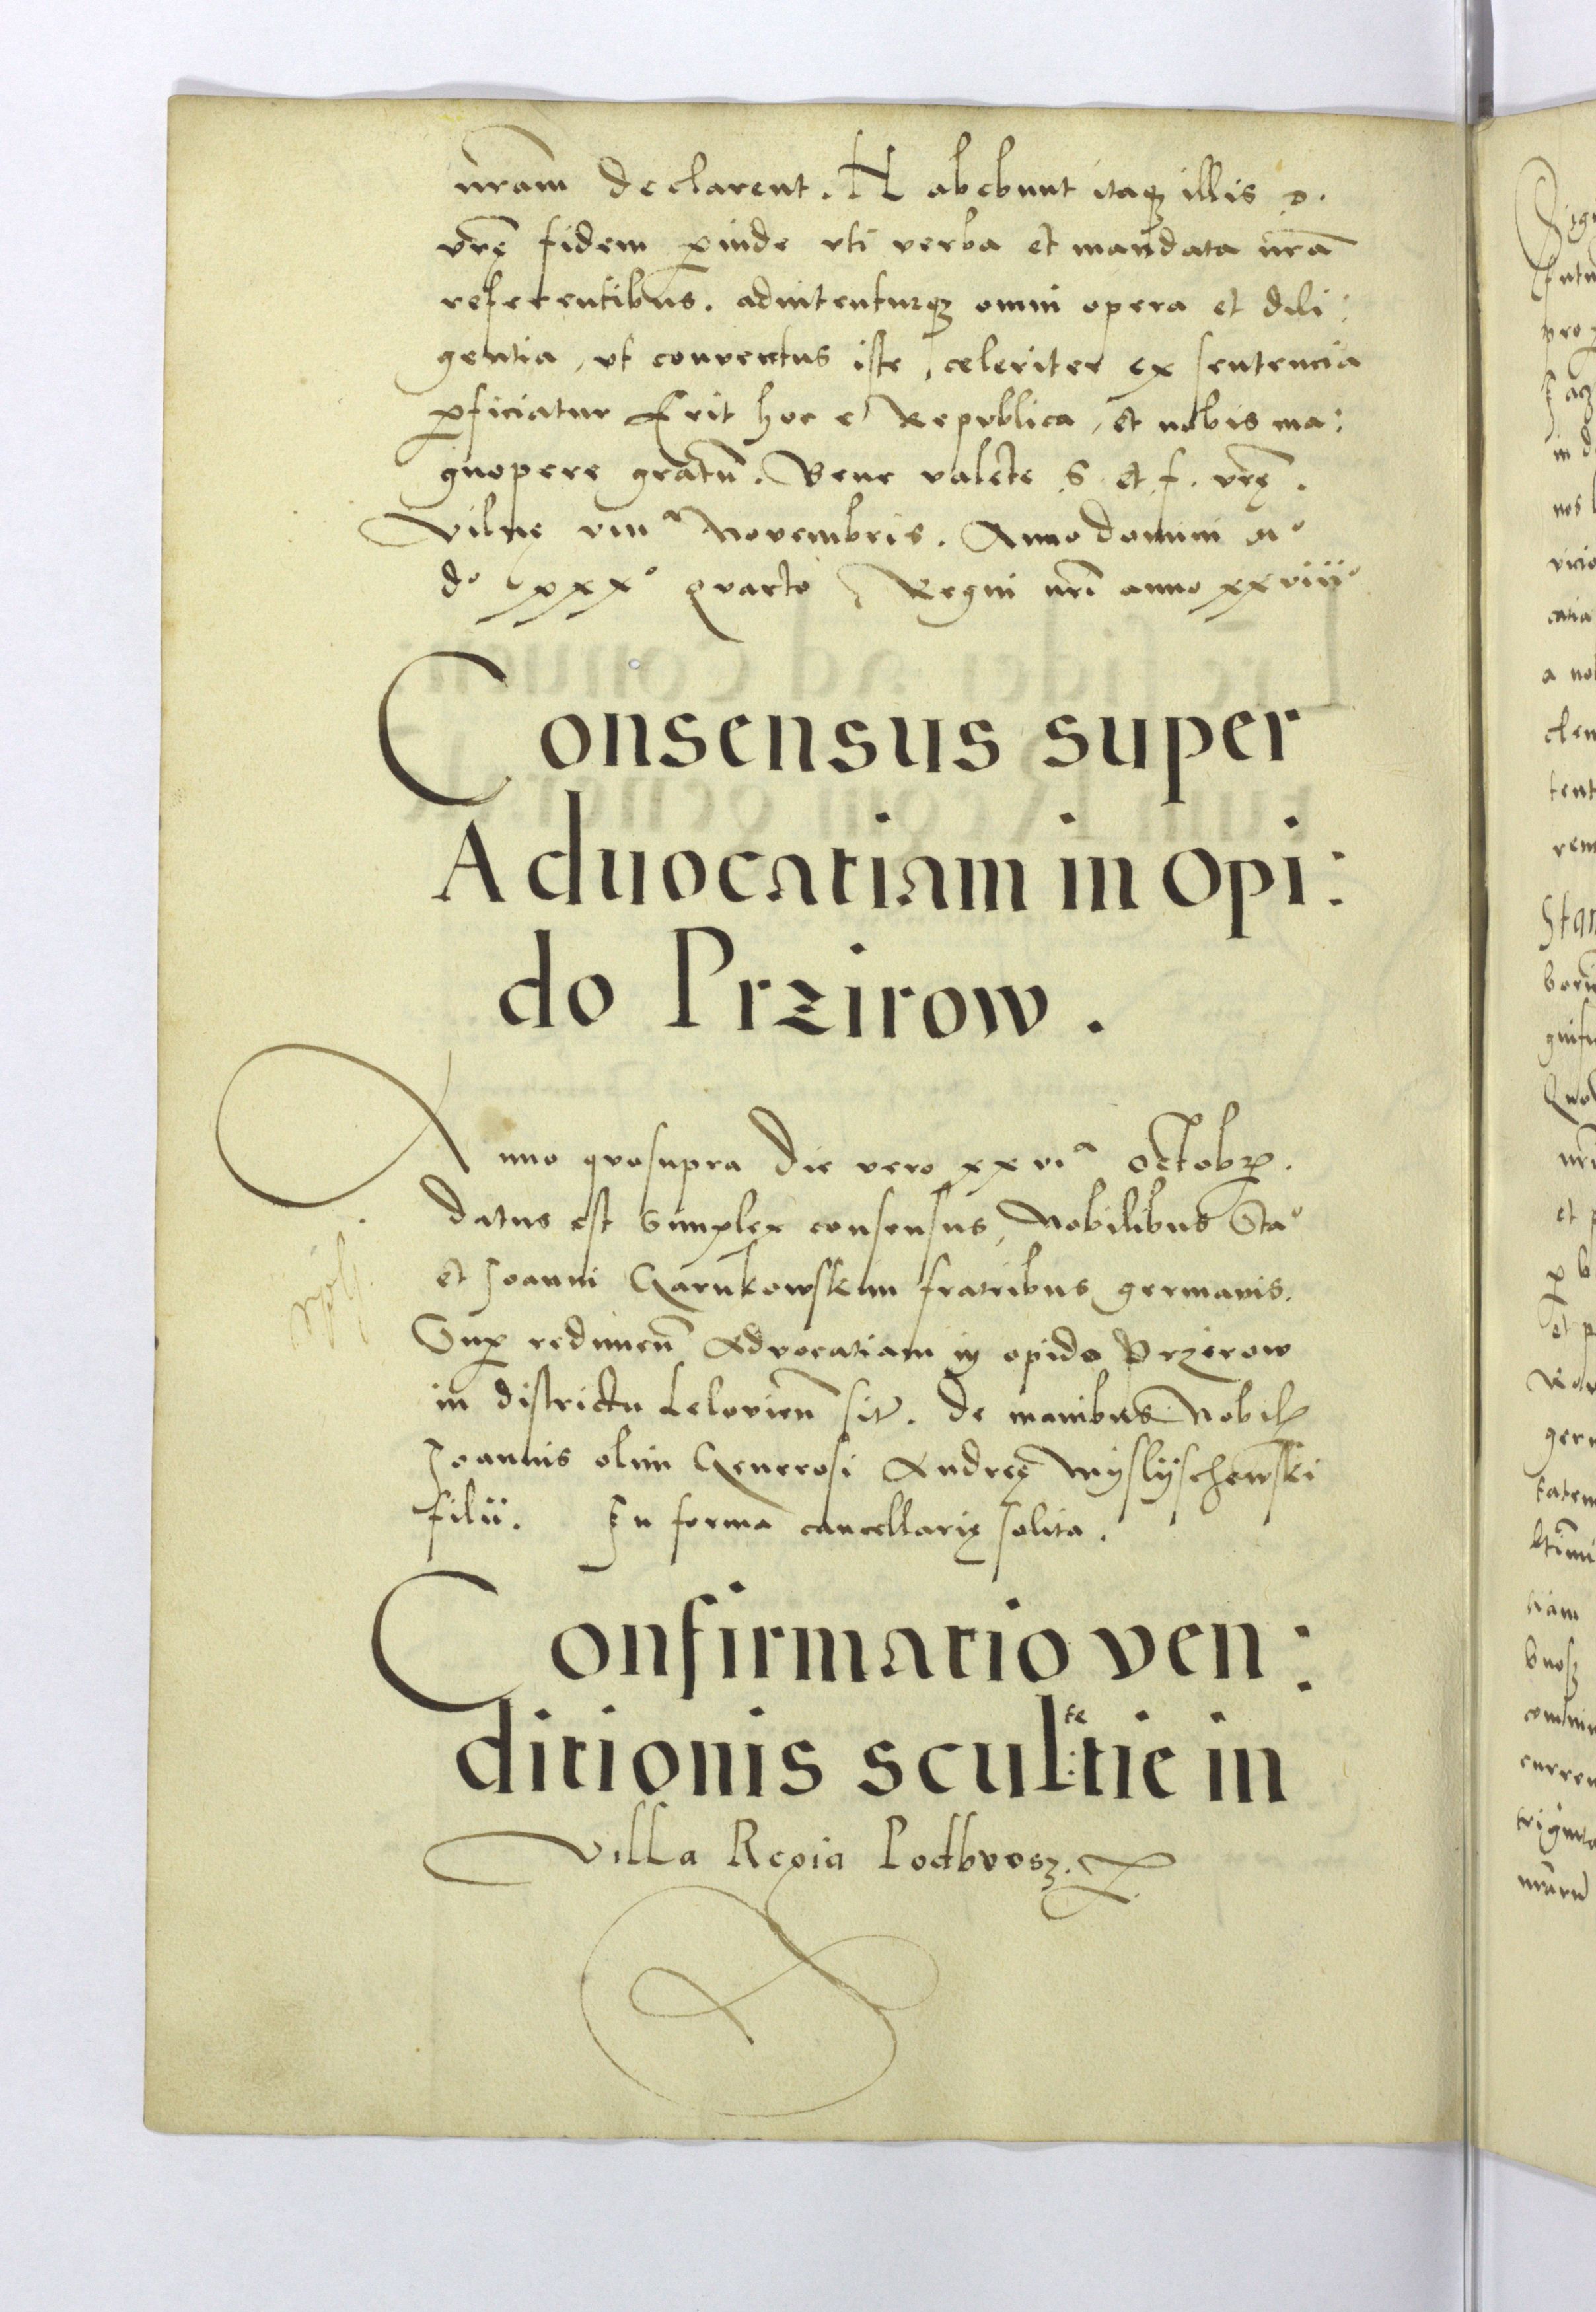 nram declarent. Habebunt itaqz illis D.
vrę fidem pinde vti verba et mandata nra
referentibus. adnitenturqz omni opera et dili:
gentia, vt conventus iste, celeriter ex sentencia
pficiatur Erit hoc e Republica, et nobis ma:
gnopere gratū. Bene valete S. et f. vrę.
Vilnę viiia Novembris. Anno domini Mo
do xxxo quarto Regni nri anno xxviiio
Consensus super
Aduocatiam in opi:
do Przirow.
Anno quosupra die vero xxvia octobr.
datus est simplex consensus, Nobilibus Stao
et Joanni Karnkowskim fratribus germanis.
Sup redimen Advocatiam in opido Przirow
in districtu Lelovien sit. de manibus Nobil
Joannis olim Generosi Andreę Myslyschewski
filii. In forma cancellarię solita.
Confirmatio ven:
ditionis scultetie in
villa Regia Podbrosz.